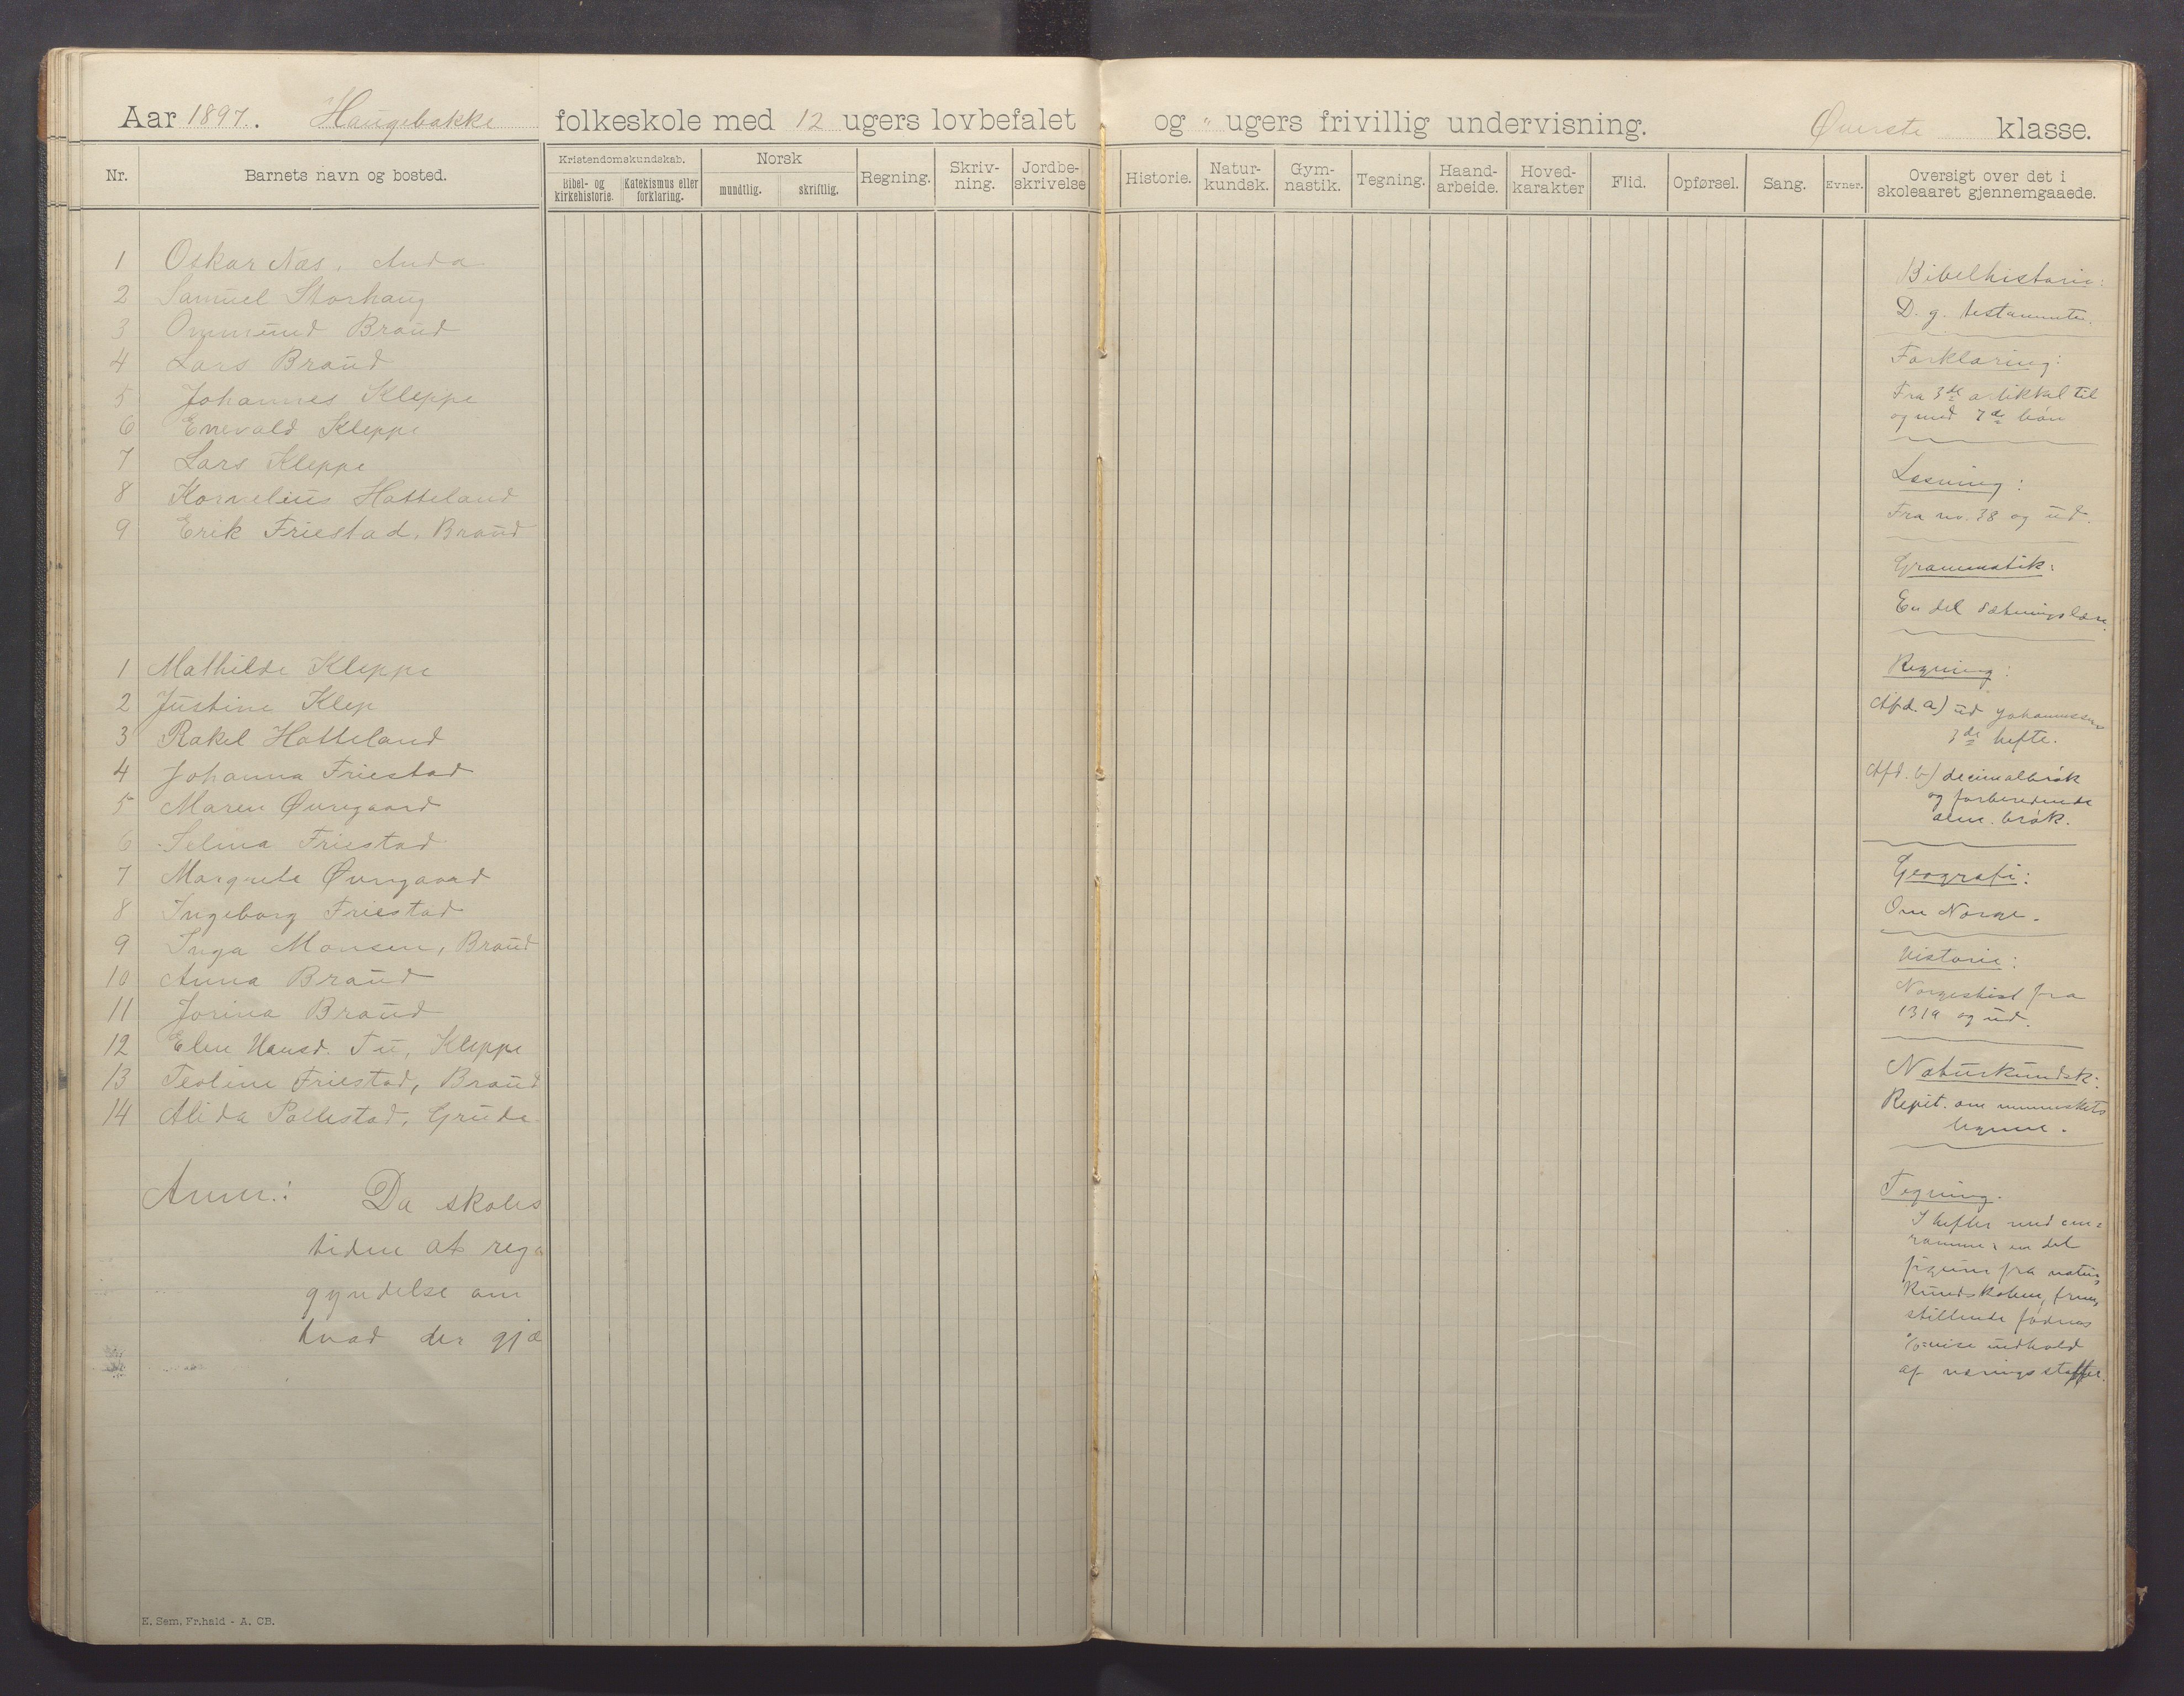 Aar 1897. Haugebakke folkeskole med 12 ugers lovbefalet og " ugers frivillig undervisning. Øverste klasse.
Nr.
Barnets navn og bosted.
Kristendomskundskab.
Bibel- og kirkehistorie.
Katekismus eller forklaring.
Norsk
mundtlig.
skriftlig.
Regning.
Skriv-
ning.
Jordbe-
skrivelse
Historie.
Natur-
kundsk.
Gym-
nastik.
Tegning.
Haand-
arbeide.
Hoved-
karakter
Flid.
Opførsel.
Sang.
Evner.
Oversigt over det i
skoleaaret gjennemgaaede.
1 Oskar Næs, Anda
2 Samuel Storhaug
3 Ommund Braud
4 Lars Braud
5 Johannes Kleppe
6 Enevald Kleppe
7 Lars Kleppe
8 Kornelius Hatteland
9 Erik Friestad, Braud
1 Mathilde Kleppe
2 Justine Klep
3 Rakel Hatteland
4 Johanna Friestad
5 Maren Øvregaard
6 Selina Friestad
7 Margrete Øvregaard
8 Ingeborg Friestad
9 Inga Monsen, Braud
10 Anna Braud
11 Jorina Braud
12 Elen Hansd. Tu, Kleppe
13 Teoline Friestad, Braud
14 Alida Pollestad, Grude.
Anm.: Da skoles
tiden at reg
gyndelse om
hvad der gjæ
E. Sem, Fr.hald - A. CB.
Bibelhistorie:
D. g. testamente.
Forklaring:
Fra 3de artikkel til
og med 7de bøn
Læsning:
Fra no. 38 og ud.
Grammatik:
En del sætningslære.
Regning:
Afd. a) ud Johannessens
3de hefte.
Afd. b) decimalbrøk
og forberedende
alm. brøk.
Geografi:
Om Norge.
Historie:
Norgeshist fra
1319 og ud.
Naturkundsk:
Repet. om menneskets
legeme.
Tegning.
I hefter med om=
ramme; en del
figurer fra natur=
kundskaben, frem=
stillende fødens
%=vise indhold
af næringsstoffer.